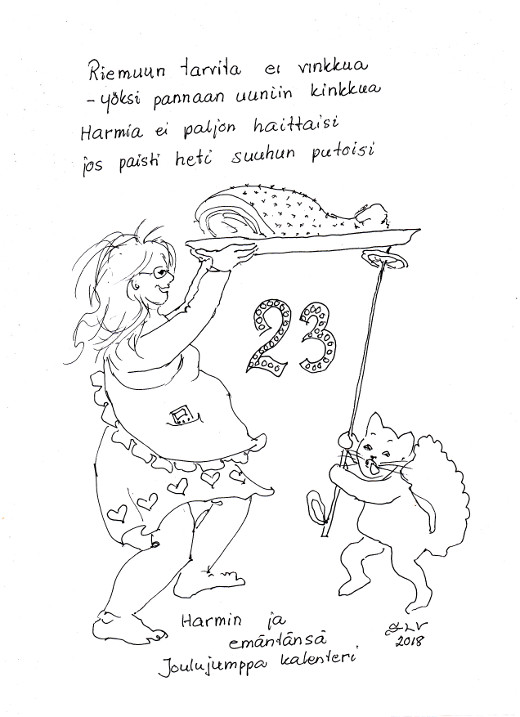 Riemuun tarvita ei vinkkua
- yöksi pannaan uuniin kinkkua
Harmia ei paljon haittaisi
jos paisti heti suuhun putoisi
23
Harmin ja
emäntänsä
Joulujumppa kalenteri
2018